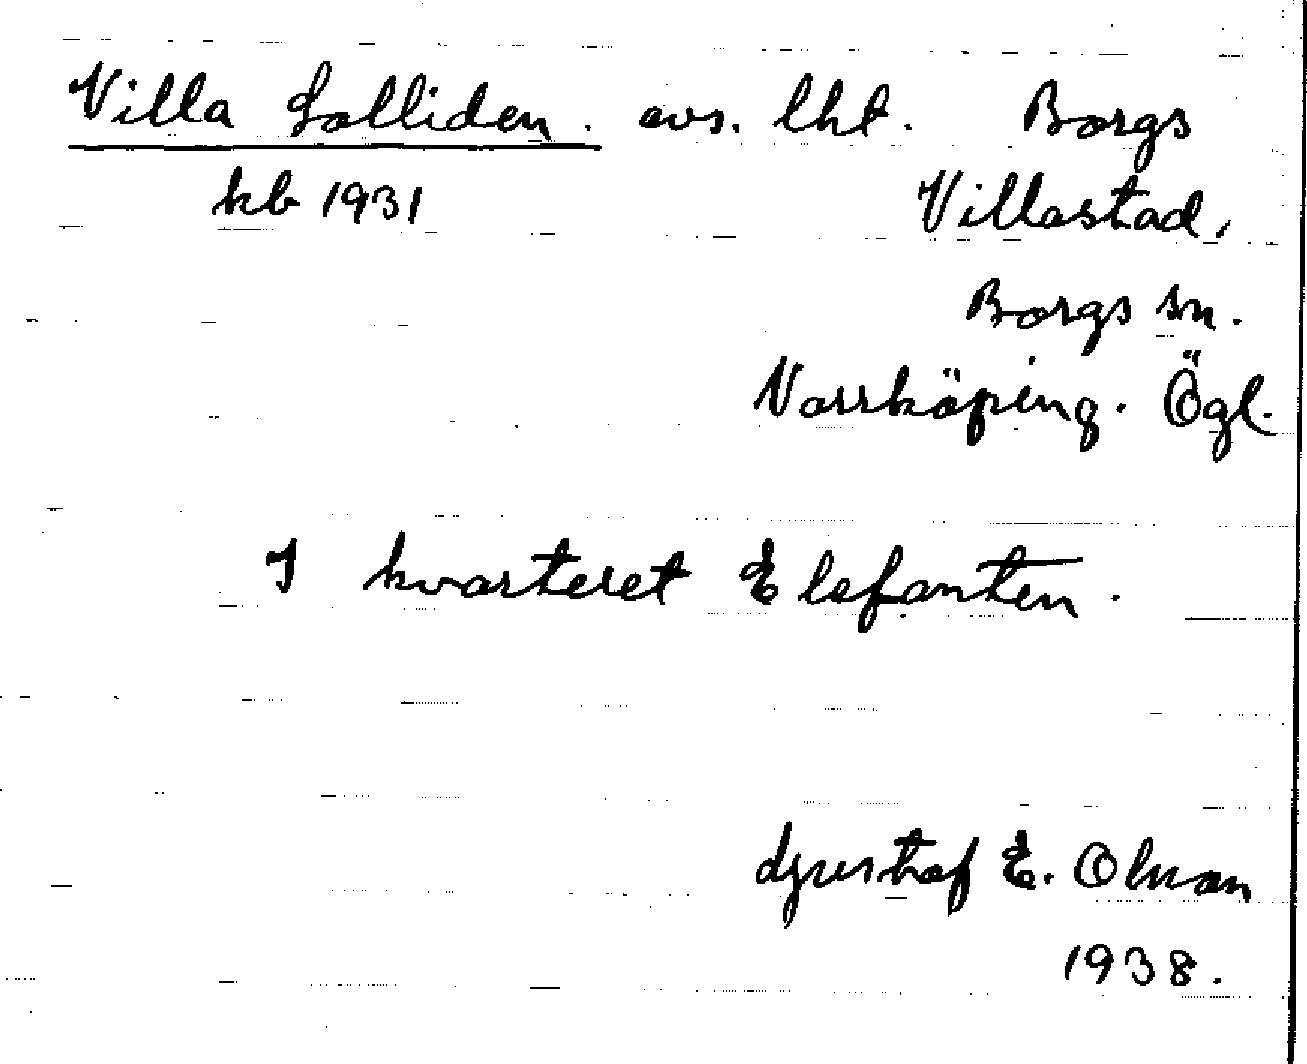 Villa Solliden. avs. lht. Borgs
kb 1931 Villastad,
Borgs sn.
Norrköping. Ögl.
I kvarteret Elefanten.
Gustaf E. Olman
1938.